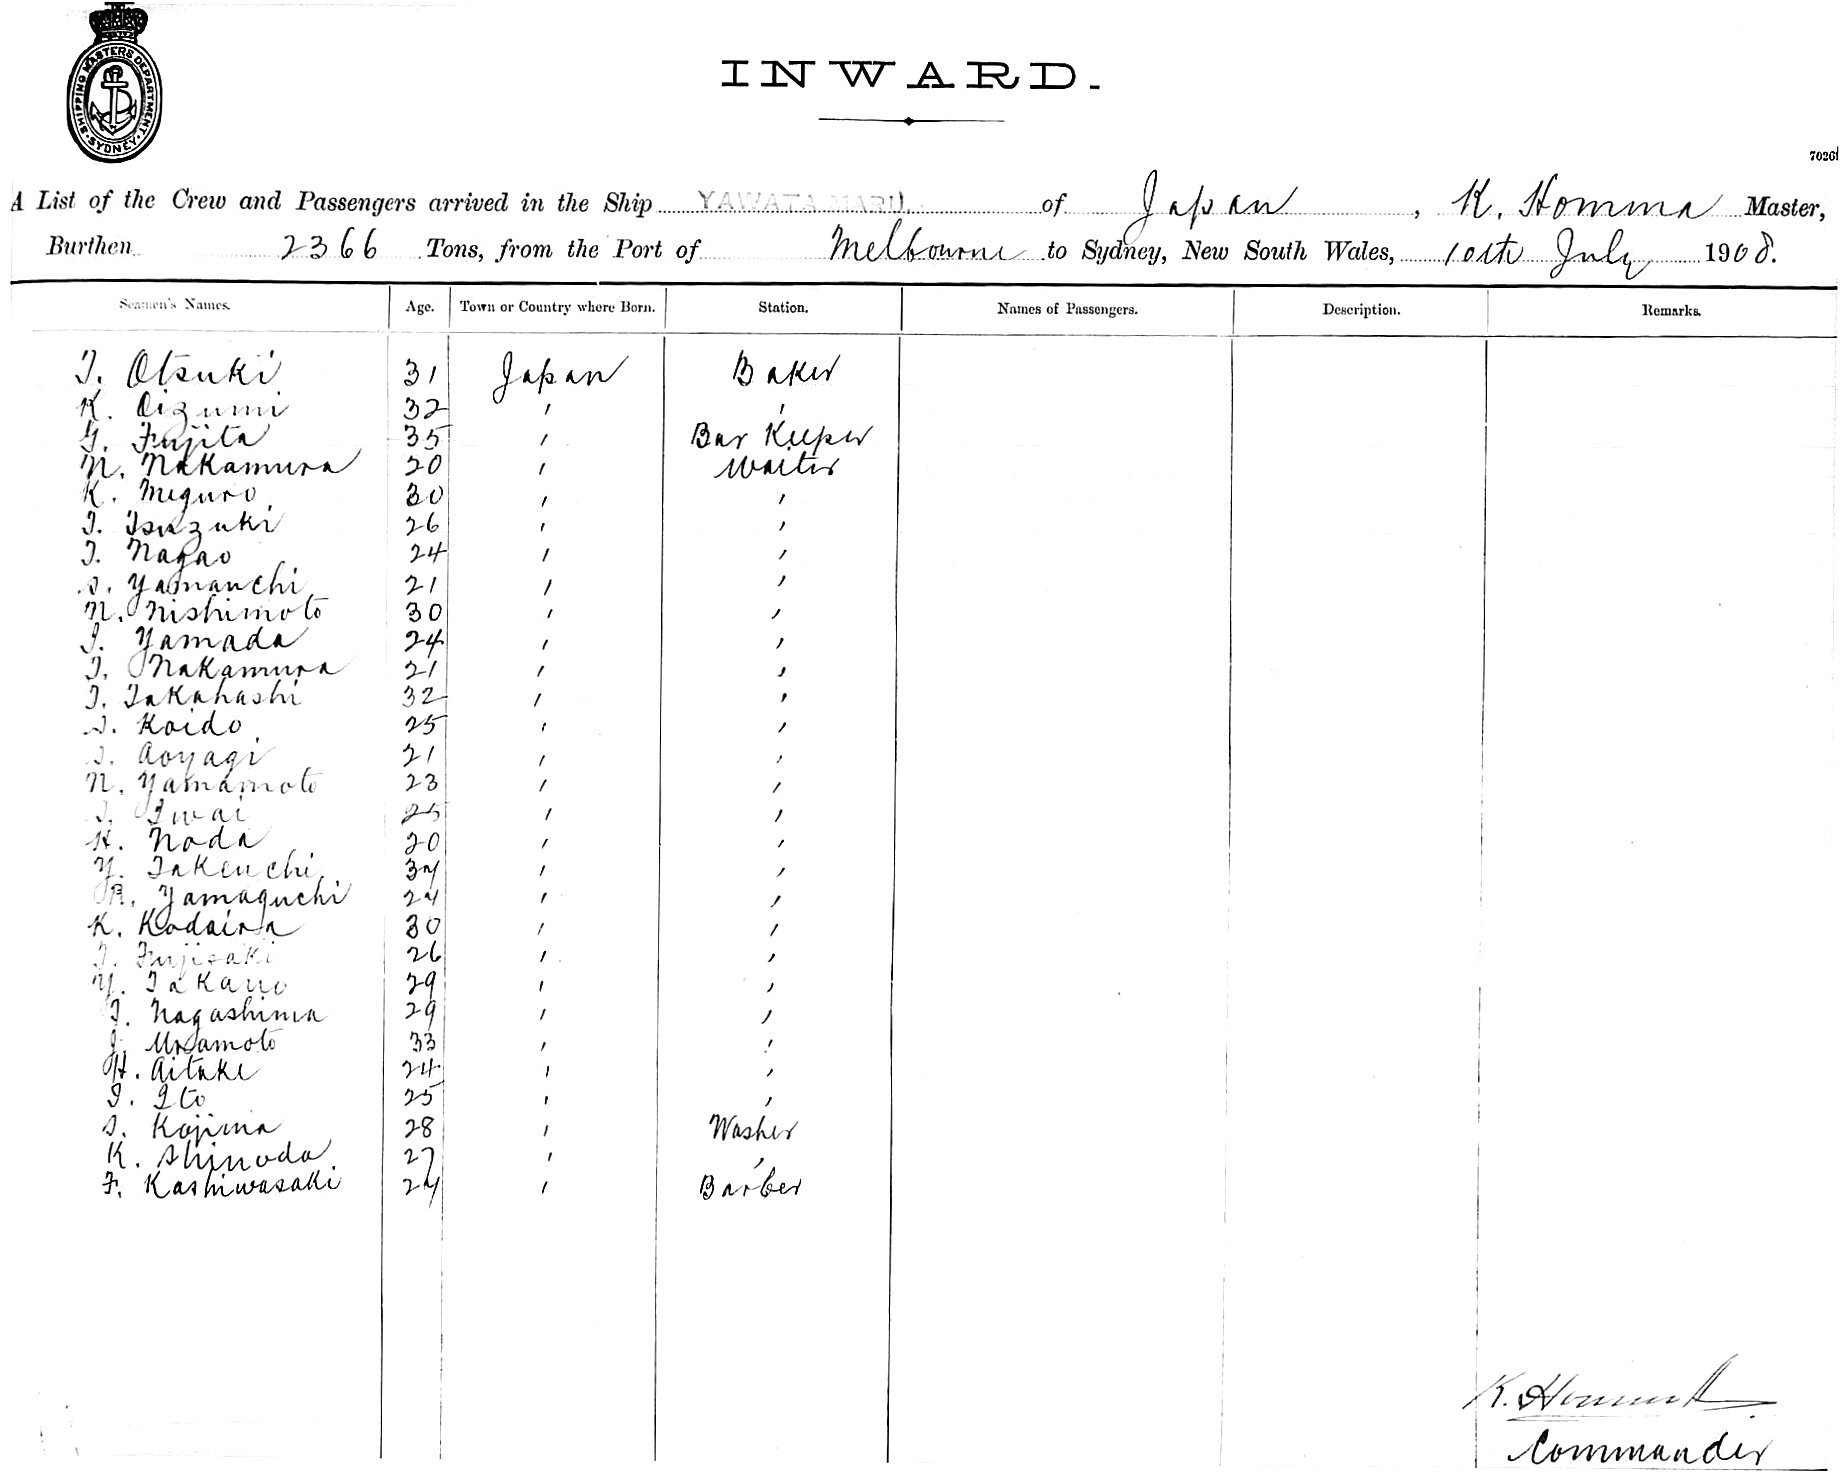 SHIPPING MASTERS DEPARTMENT · SYDNEY ·
INWARD.
7026
A List of the Crew and Passengers arrived in the Ship YAWATA MARU of Japan, K. Homma Master,
Burthen 2366 Tons, from the Port of Melbourne to Sydney, New South Wales, 10th July 1908.
Seamen's Names. Age. Town or Country where Born. Station. Names of Passengers. Description. Remarks.
T. Otsuki 31 Japan Baker
K. Oizumi 32 ' '
G. Fujita 35 ' Bar Keeper
N. Nakamura 20 ' Waiter
K. Meguro 30 ' '
T. Tsuzuki 26 ' '
T. Nagao 24 ' '
S. Yamauchi 21 ' '
N. Nishimoto 30 ' '
I. Yamada 24 ' '
T. Nakamura 21 ' '
T. Takahashi 32 ' '
S. Koido 25 ' '
S. Aoyagi 21 ' '
N. Yamamoto 23 ' '
Iwai 25 ' '
H. Noda 20 ' '
Y. Takeuchi 34 ' '
R. Yamaguchi 24 ' '
K. Kodaira 30 ' '
T. Fujisaki 26 ' '
Y. Takano 29 ' '
T. Nagashima 29 ' '
33 ' '
H. Aitake 24 ' '
I. Ito 25 ' '
S. Kojima 28 ' Washer
K. Shinoda 27 ' '
F. Kashiwasaki 24 ' Barber
K. Homma
Commander